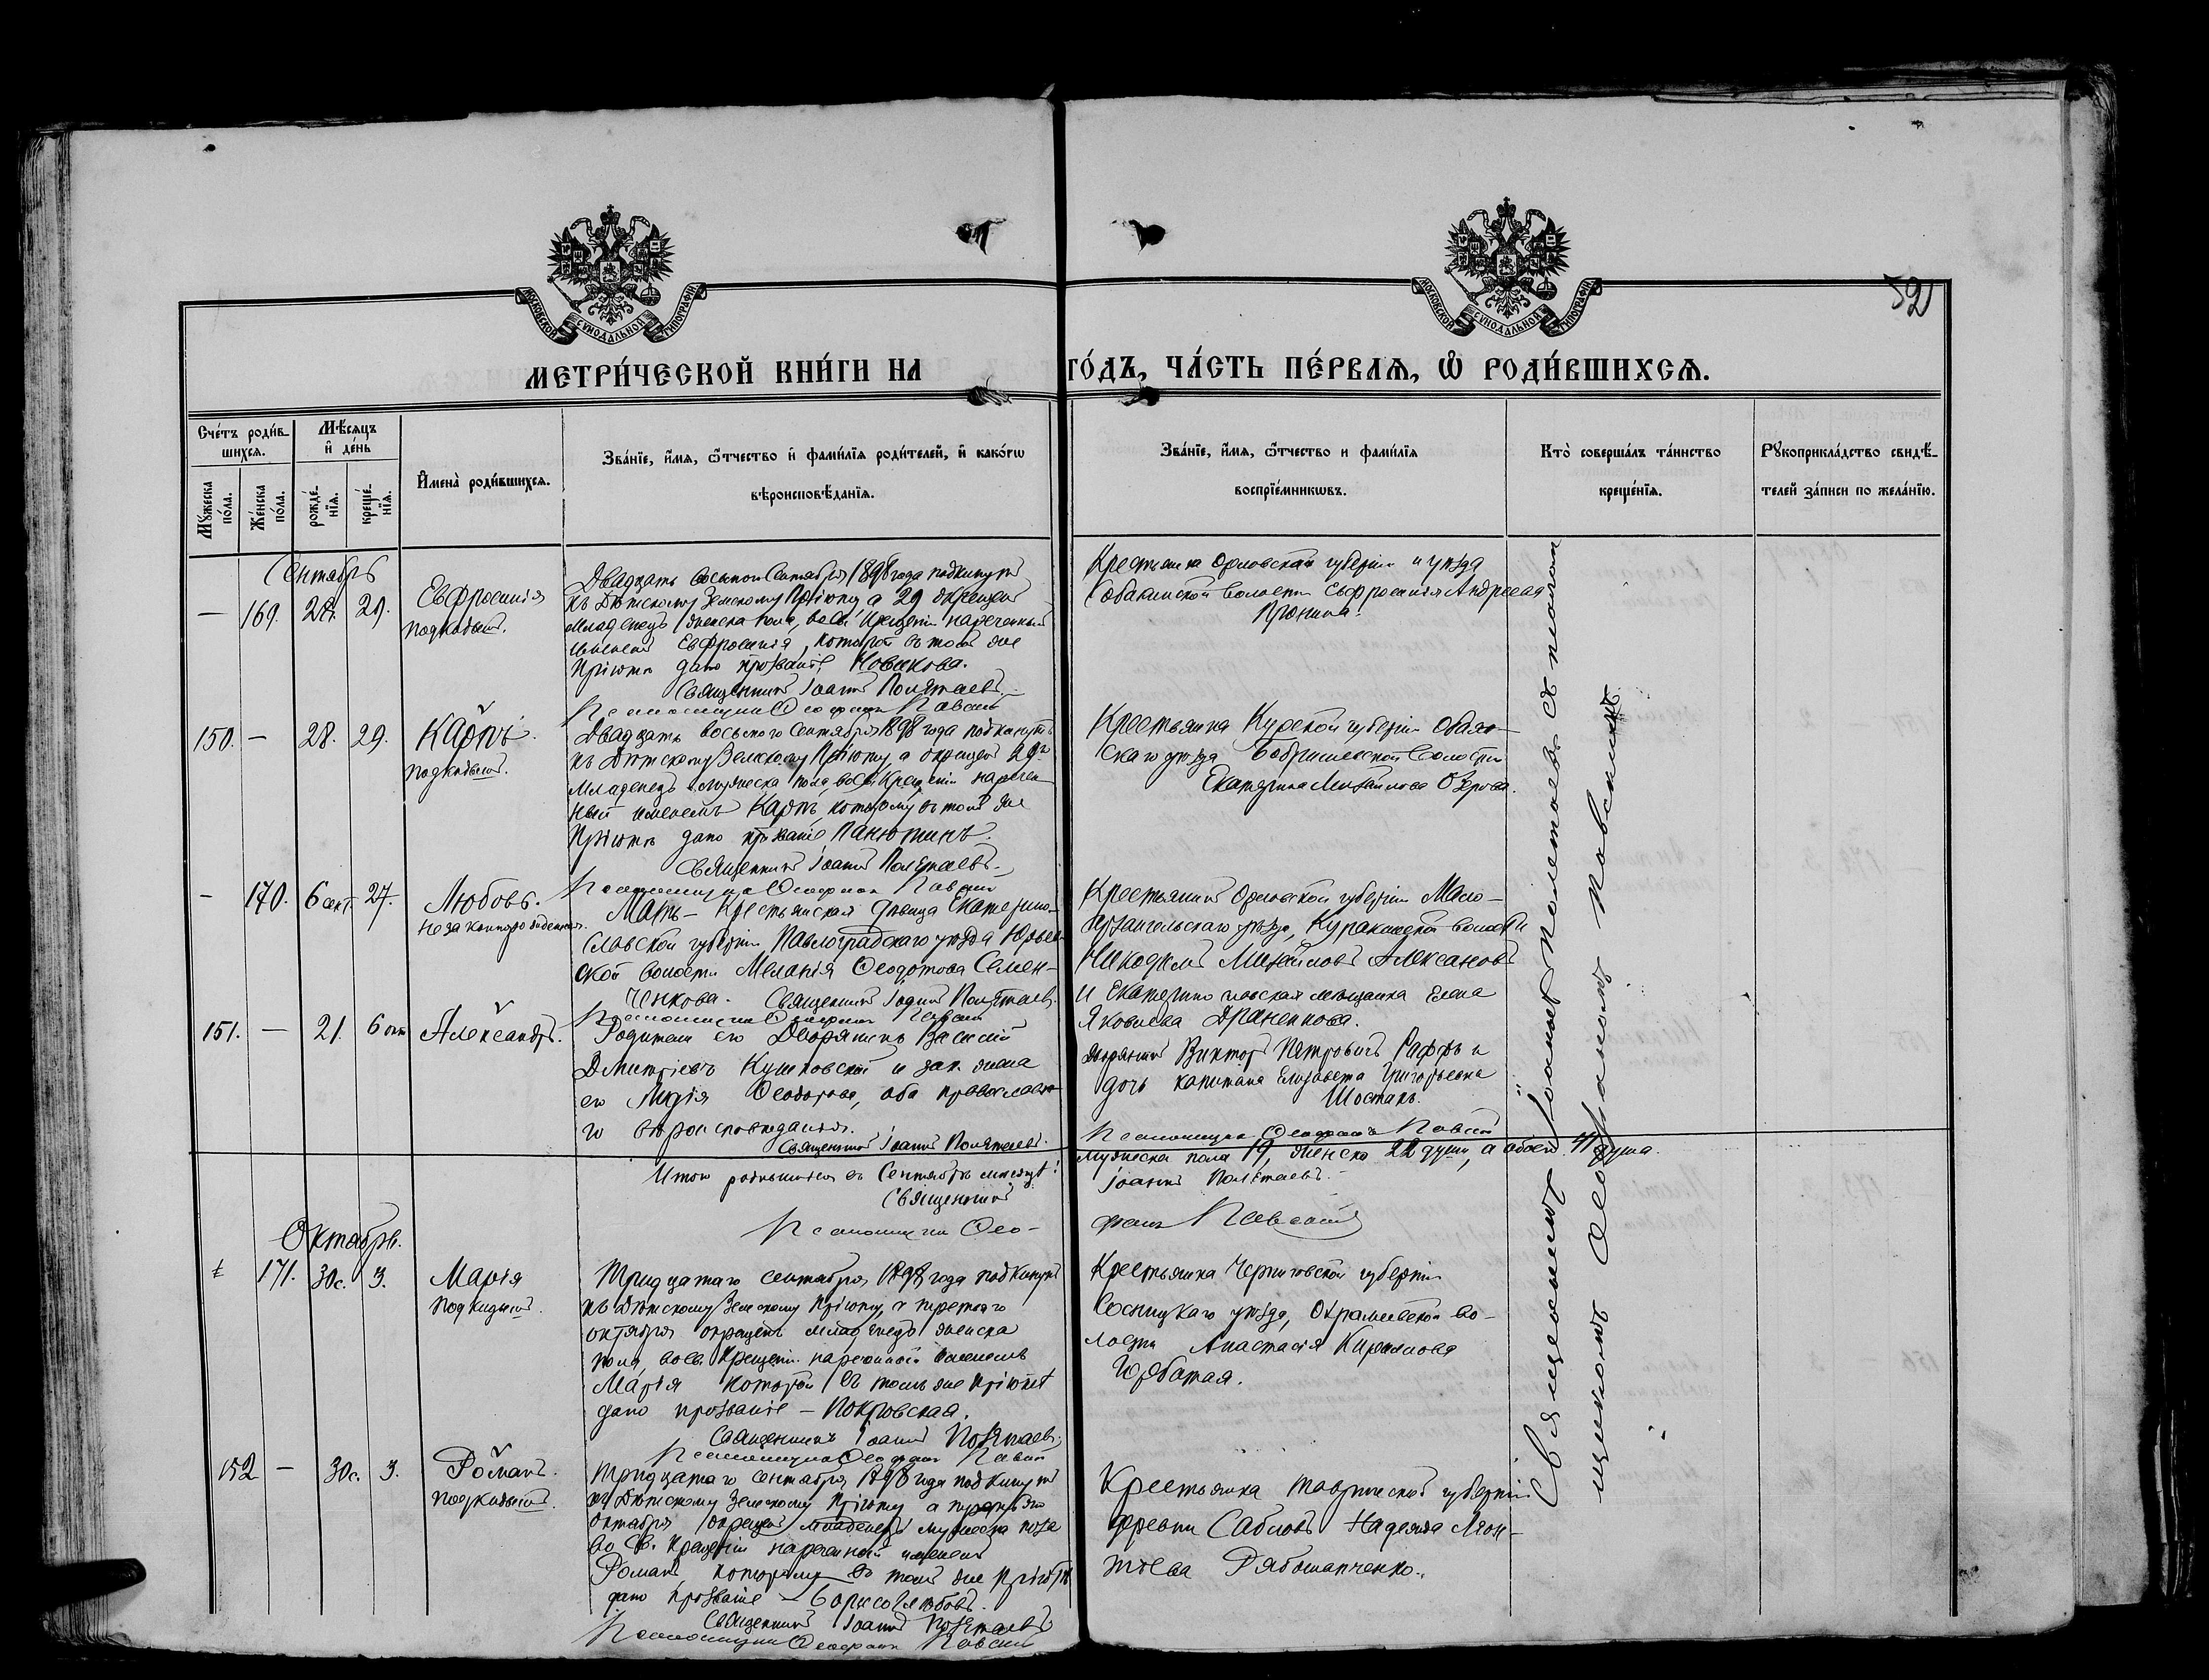 МОСКОВСКОЙ СѴНОДАЛЬНОЙ ТИПОГРАФІИ
МОСКОВСКОЙ СѴНОДАЛЬНОЙ ТИПОГРАФІИ
592
МЕТРИ́ЧЕСКОЙ КНИ́ГИ НА ГО́ДЪ, ЧА́СТЬ ПЕ́РВАѦ, Ѡ҆ РОДИ́ВШИХСѦ.
Сче́тъ роди́в-
шихсѧ.
Мꙋ́жеска по́ла.
Же́нска по́ла.
Мѣ́сѧцъ
и҆ де́нь
рожде́-
нїѧ.
креще́-
нїѧ.
И҆мена̀ роди́вшихсѧ.
Зва́нїе, и҆́мѧ, ѻ҆́тчество и҆ фами́лїѧ роди́телей, и҆ како́гѡ
вѣроисповѣ́данїѧ.
Зва́нїе, и҆́мѧ, ѻ҆́тчество и фами́лїѧ
воспрїе́мникѡвъ.
Кто̀ соверша́лъ та́инство
креще́нїѧ.
Рꙋкоприкла́дство свидѣ́-
телей за́писи по жела́нїю.
Сентябрь
— 169. 28. 29.
Евфросинія
подкидышъ.
Двадцать восьмого Сентября 1898 года подкинутъ
къ Дѣтскому Земскому Пріюту, а 29 окрещенъ
младенецъ женска пола, во св. крещеніи нареченный
именемъ Евфросинія, которой въ томъ же
Пріютѣ дано прозваніе Новикова.
Священникъ Іоаннъ Полѣтаевъ.
Псаломщикъ Ѳеофанъ Павскій
Крестьянка Орловской губерніи и уѣзда
Собакинской волости Евфросинія Андреева
Пронина.
150. — 28. 29.
Карпъ.
подкидышъ.
Двадцать восьмого Сентября 1898 года подкинутъ
къ Дѣтскому Земскому Пріюту, а окрещенъ 29го
Младенецъ мужеска пола, во св. крещеніи наречен-
ный именемъ Карпъ, которому въ томъ же
Пріютѣ дано прозваніе Панютинъ.
Священникъ Іоаннъ Полѣтаевъ.
Псаломщикъ Ѳеофанъ Павскій
Крестьянка Курской губерніи Обоян-
скаго уѣзда Бобрышевской волости
Екатерина Михайлова Озерова.
— 170. 6 сент. 27.
Любовь.
незаконнорожденная.
Мать — Крестьянская дѣвица Екатерино-
славской губерніи Павлоградскаго уѣзда Юрьев-
ской волости Меланія Ѳеодотова Семен-
ченкова. Священникъ Іоаннъ Полѣтаевъ.
Псаломщикъ Ѳеофанъ Павскій
Крестьянинъ Орловской губерніи Мало-
архангельскаго уѣзда, Куракинской волости
Никодимъ Михайловъ Алексановъ
и Екатеринославская мѣщанка Елена
Яковлева Драненкова.
151. — 21. 6 окт
Александръ.
Родители его Дворянинъ Василій
Дмитріевъ Кушковскій и зак. жена
его Лидія Ѳеодорова, оба православна-
го вѣроисповѣданія.
Священникъ Іоаннъ Полѣтаевъ.
Дворянинъ Викторъ Петровичъ Раффъ и
дочь капитана Елизавета Григорьевна
Шостакъ.
Псаломщикъ Ѳеофанъ Павскій
Итого родившихся въ Сентябрѣ мѣсяцѣ: мужеска пола 19, женска 22 души, а обоего 41 душа.
Священникъ Іоаннъ Полѣтаевъ.
Псаломщикъ Ѳео- фанъ Павскій
Октябрь.
171. 30 с. 3.
Марія
подкидышъ.
Тридцатаго сентября 1898 года подкинутъ
къ Дѣтскому Земскому Пріюту, а третьяго
октября окрещенъ младенецъ женска
пола, во св. крещеніи нареченный именемъ
Марія которой въ томъ же Пріютѣ
дано прозваніе — Покровская.
Священникъ Іоаннъ Полѣтаевъ.
Псаломщикъ Ѳеофанъ Павскій
Крестьянка Черниговской губерніи
Сосницкаго уѣзда, Охрамѣевской во-
лости Анастасія Кириллова
Горбатая.
152 — 30 с. 3.
Романъ.
подкидышъ.
Тридцатаго сентября 1898 года подкинутъ
къ Дѣтскому Земскому Пріюту а третьяго
октября окрещенъ младенецъ мужеска пола
во св. крещеніи нареченный именемъ
Романъ, которому въ томъ же Пріютѣ
дано прозваніе — Борисоглѣбовъ.
Священникъ Іоаннъ Полѣтаевъ
Псаломщикъ Ѳеофанъ Павскій
Крестьянка Таврической губерніи
деревни Сабловъ Надежда Леон-
тьева Рябошапченко.
Священникъ Іоаннъ Полѣтаевъ съ псалом-
щикомъ Ѳеофаномъ Павскимъ